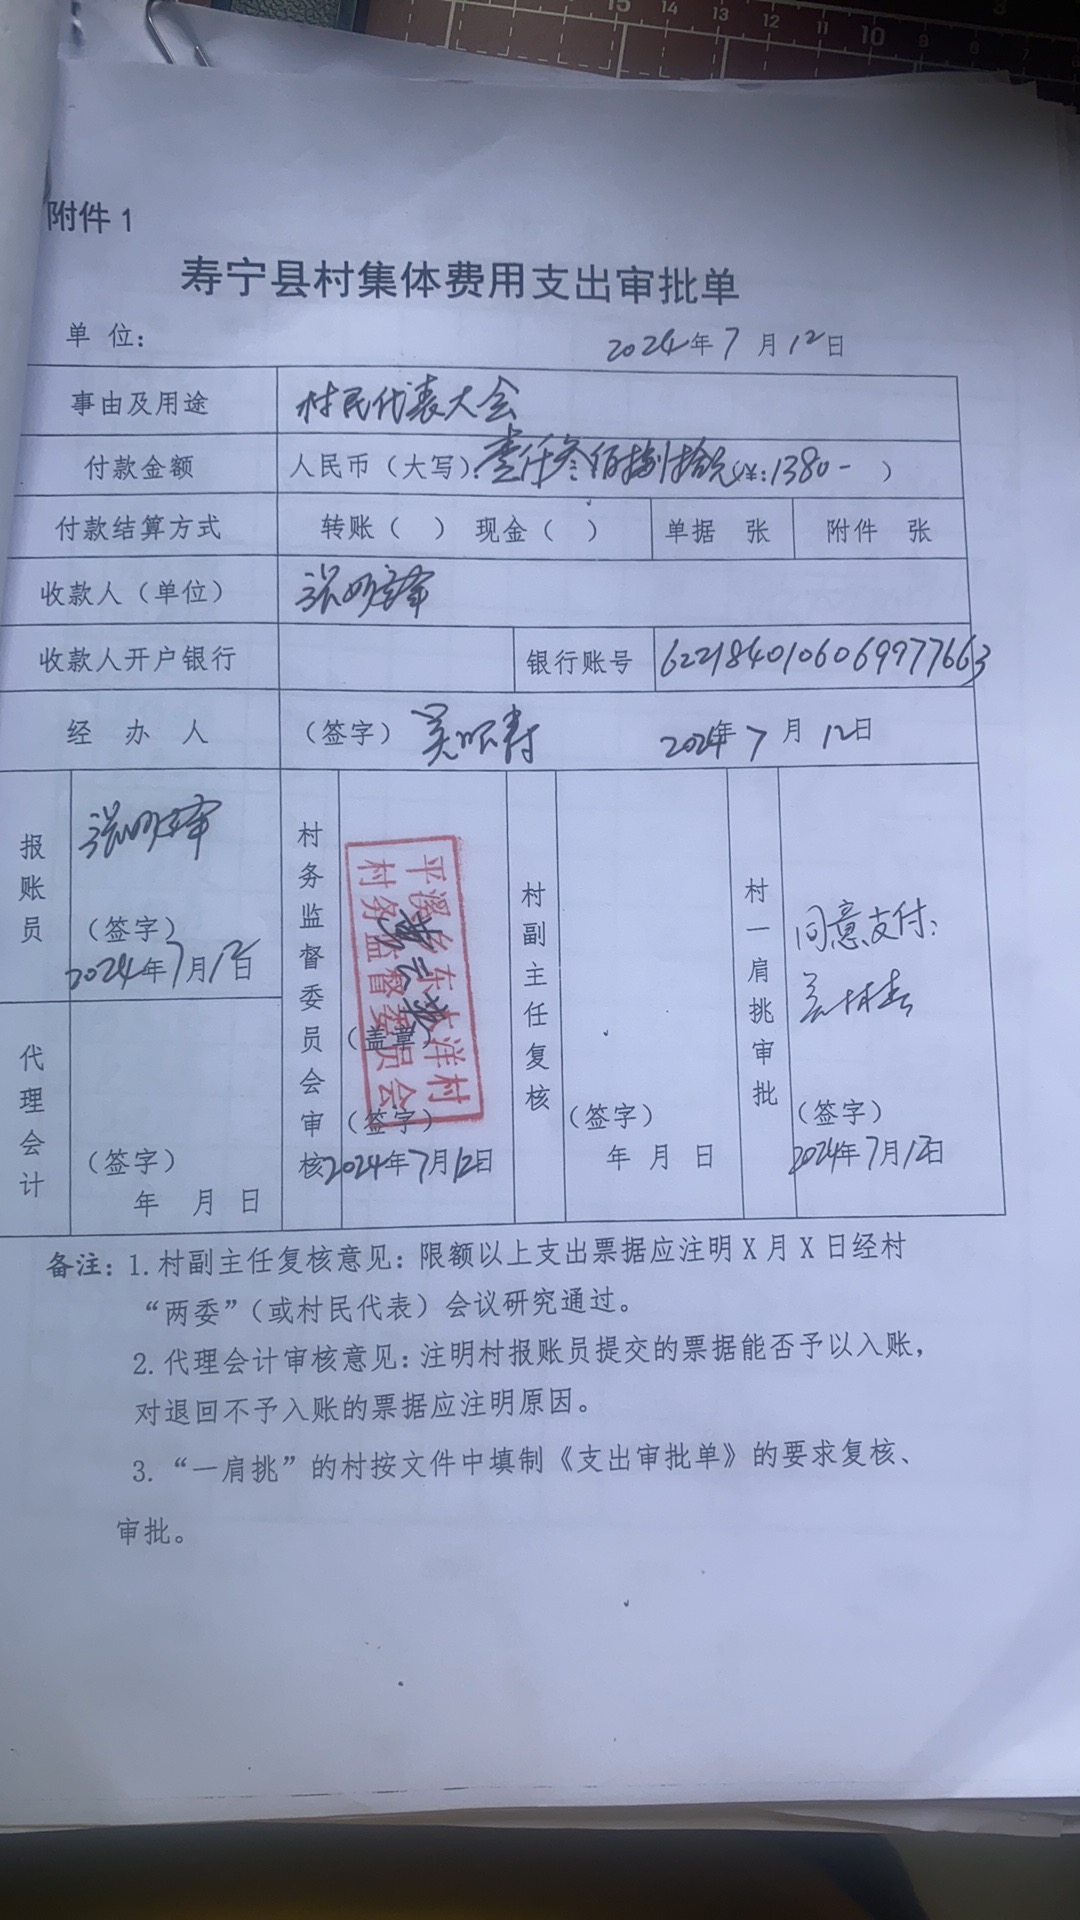 附件 1
寿宁县村集体费用支出审批单
单 位： 2024年7月12日
事由及用途 村民代表大会
付款金额 人民币（大写）：壹仟叁佰捌拾元（¥：1380- ）
付款结算方式 转账（ ） 现金（ ） 单据 张 附件 张
收款人（单位） 张
收款人开户银行 银行账号 6221840106069977663
经 办 人 （签字） 吴 寿 2024年7月12日
报账员 张 （签字） 2024年7月12日
代理会计 （签字） 年 月 日
村务监督委员会审核 （盖章） （签字） 2024年7月12日
平溪乡东木洋村
村务监督委员会
村副主任复核 （签字） 年 月 日
村一肩挑审批 同意支付： （签字） 2024年7月12日
备注：1.村副主任复核意见：限额以上支出票据应注明X月X日经村
“两委”（或村民代表）会议研究通过。
2.代理会计审核意见：注明村报账员提交的票据能否予以入账，
对退回不予入账的票据应注明原因。
3.“一肩挑”的村按文件中填制《支出审批单》的要求复核、
审批。
15 14 13 12 11 10 9 8 7